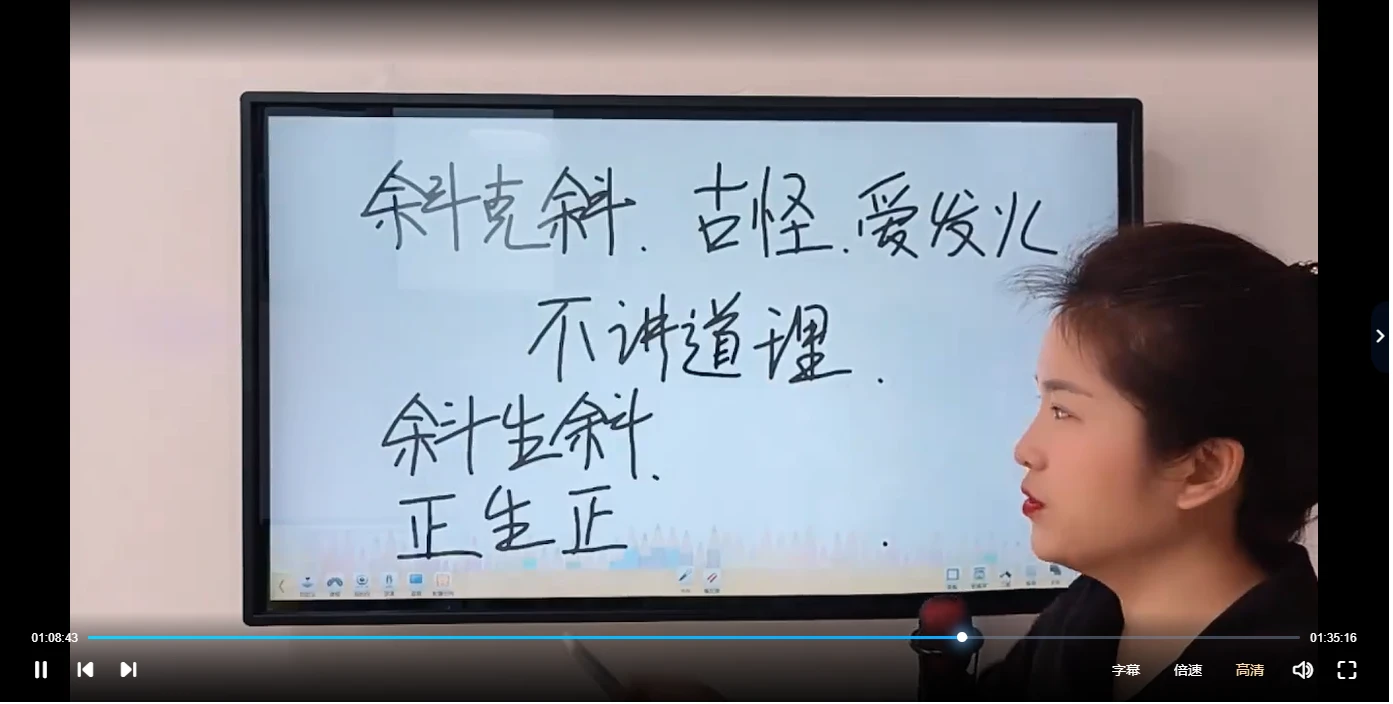 斜克斜.古怪.爱发火
不讲道理.
斜生斜.
正生正
01:08:43
01:35:16
字幕 倍速 高清